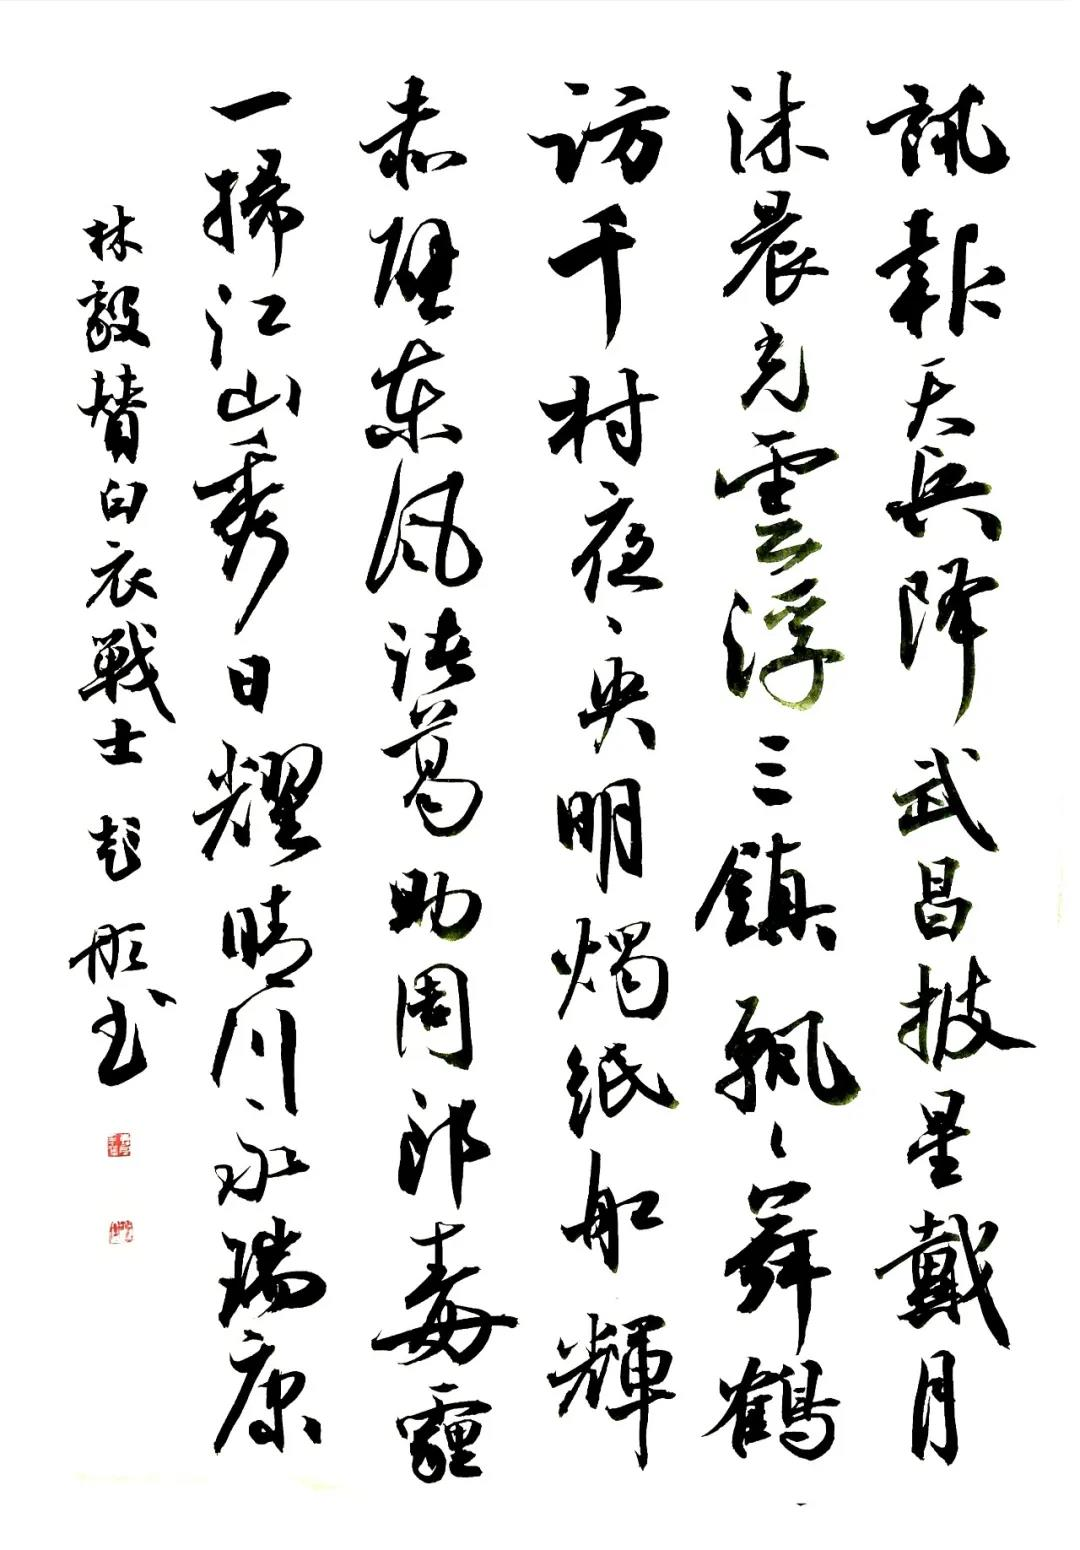 訊報天兵降武昌披星戴月
沐晨光雲浮三鎮飄飄舞鶴
訪千村夜夜央明燭紙船輝
赤壁东风诸葛助周郎毒霾
一掃江山秀日耀晴川永瑞康
林毅贊白衣戰士 彤书